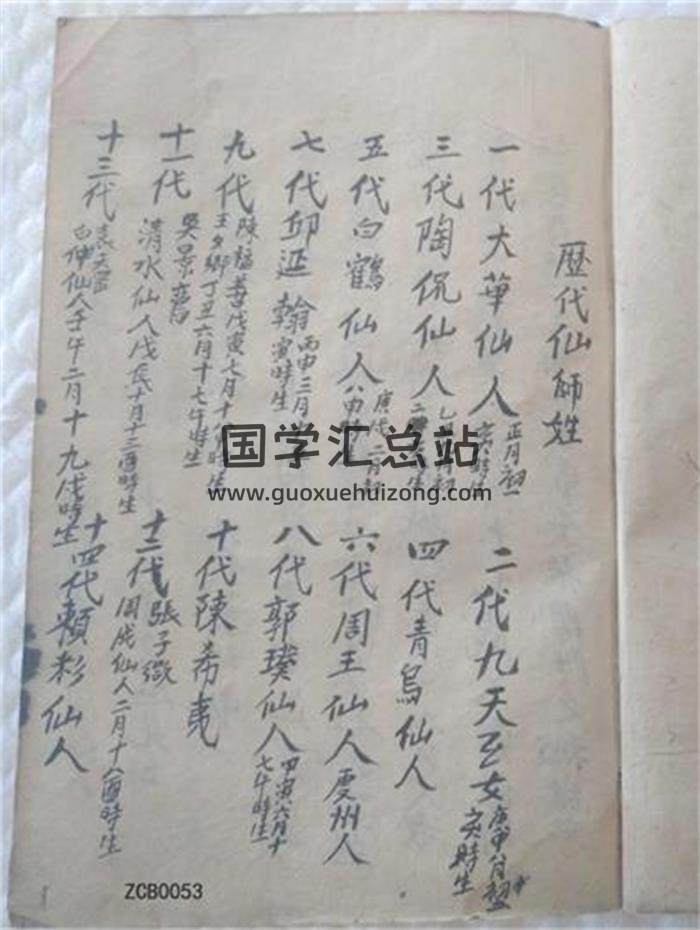 歷代仙師姓
一代大華仙人 正月初一 寅時生
二代九天玄女 庚申八月初十 亥時生
三代陶侃仙人
四代青烏仙人
五代白鶴仙人 庚戌二月初八申時
六代周王仙人慶州人
七代邱延翰 丙申三月 寅時生
八代郭璞仙人 甲寅六月十七午時生
九代 陳福善戊寅七月十 時生
王夕鄉丁丑六月十七午時生
十代陳希夷
十一代 吳景鸞
清水仙人戊辰十月十三酉時生
十二代 張子微
周成仙人二月十八酉時生
十三代 袁天罡
白仲仙人壬午二月十九戌時生
十四代賴杉仙人
国学汇总站
www.guoxuehuizong.com
ZCB0053